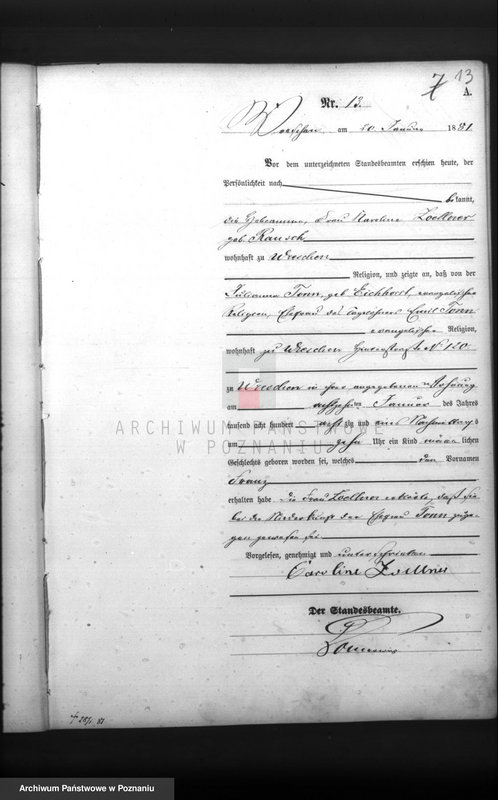 7 13
A.
Nr. 13.
Wreschen am 20 Januar 1881
Vor dem unterzeichneten Standesbeamten erschien heute, der
Persönlichkeit nach
bekannt,
die Hebeamme, Frau Karoline Zoellner
geb. Rausch
wohnhaft zu Wreschen
Religion, und zeigte an, daß von der
Julianna Tonn, geb. Eichhorst, evangelischer
Religion, Ehefrau des Tagelöhners Emil Tonn
evangelischer Religion,
wohnhaft zu Wreschen No 120
zu Wreschen in ihrer angegebenen Wohnung
am achtzehnten Januar des Jahres
tausend acht hundert achtzig und eins Nachmittags
um zehn Uhr ein Kind männlichen
Geschlechts geboren worden sei, welches den Vornamen
Franz
erhalten habe die Frau Zoellner erklärte, daß sie
bei der Niederkunft der Ehefrau Tonn zuge-
gen gewesen sei.
Vorgelesen, genehmigt und unterschrieben
Caroline Zoellner
Der Standesbeamte.
ARCHIWUM PAŃSTWOWE
W POZNANIU
Archiwum Państwowe w Poznaniu